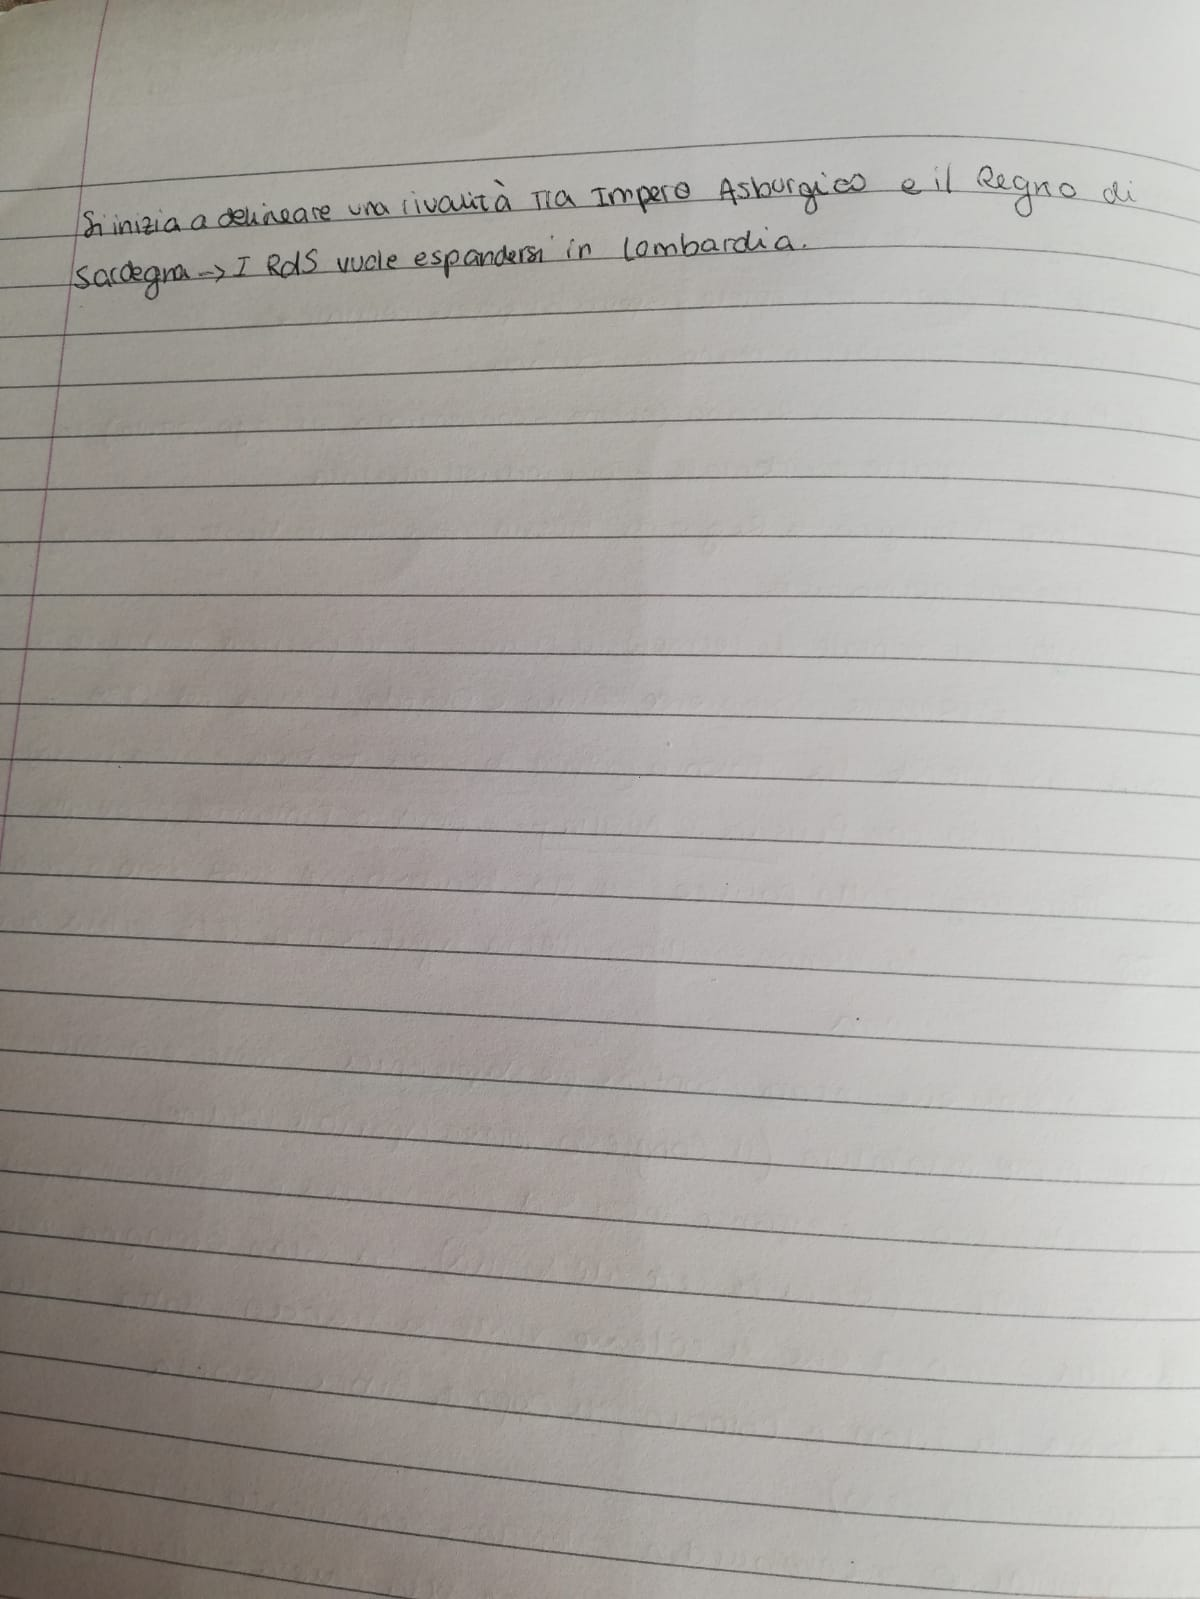 Si inizia a delineare una rivalità tra Impero Asburgico e il Regno di
Sardegna -> I RdS vuole espandersi in Lombardia.